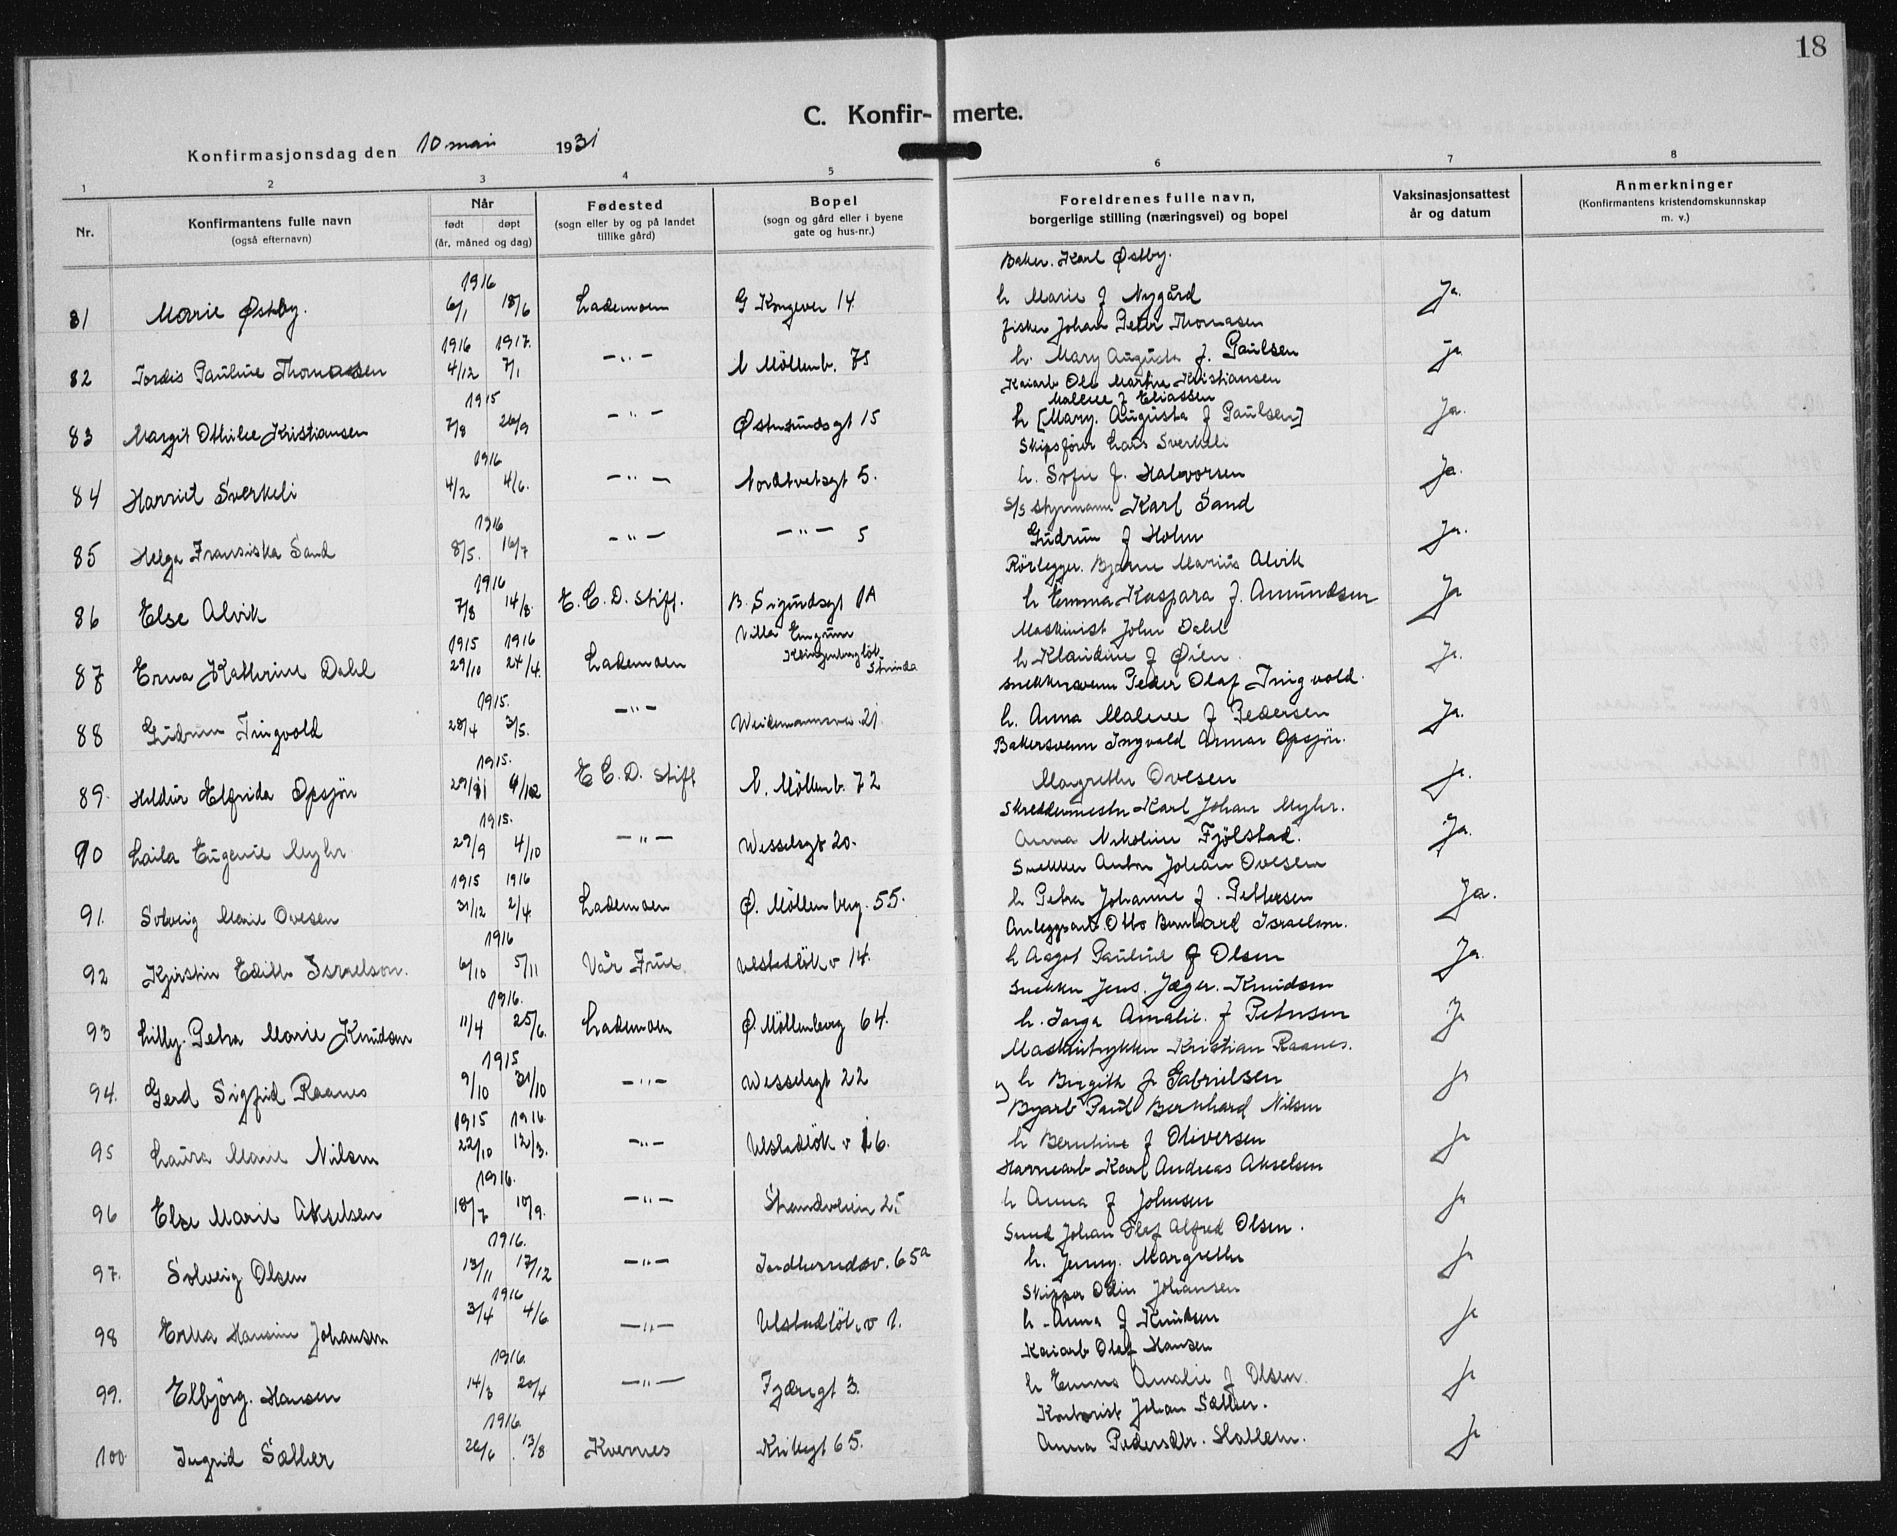 18
C. Konfirmerte.
Konfirmasjonsdag den 10 mai 1931
1 2 3 4 5 6 7 8
Nr.
Konfirmantens fulle navn
(også efternavn)
Når
født døpt
(år, måned og dag)
Fødested
(sogn eller by og på landet
tillike gård)
Bopel
(sogn og gård eller i byene
gate og hus-nr.)
Foreldrenes fulle navn,
borgerlige stilling (næringsvei) og bopel
Vaksinasjonsattest
år og datum
Anmerkninger
(Konfirmantens kristendomskunnskap
m. v.)
Baker. Karl Østby.
1916
81 Marie Østby. 6/1 18/6 Lademoen G Kongevei 14 h Marie f Nygård Ja.
Fisker Johan Peter Thomasen
1916 1917.
82 Tordis Pauline Thomassen 4/12 7/1 —"— N Möllenb. 75 h. Mary Augusta f. Paulsen ja
Kaiarb Ole Martin Kristiansen
1915 Malene f Eliassen
83 Margit Othilie Kristiansen 7/8 26/9 —"— Østersundsgt 15 h [Mary. Augusta f Paulsen] Ja.
Skipsfører Lars Sverkeli
1916
84 Harriet Sverkeli 4/2 4/6. —"— Nordtvetsgt 5. h. Sofie f. Halvorsen Ja.
S/S styrmann Karl Sand
1916
85 Helga Fransiska Sand 8/5. 16/7 —"— —"— 5 Gudrun f Holm Ja.
Rörlegger. Bjarne Marius Alvik
1916
86 Else Alvik 7/8 14/8. E. C. D. Stift. B. Sigurdsgt 1A h Emma Kaspara f. Amundsen Ja
Maskinist John Dahl
1915 1916 Villa
87 Erna Kathrine Dahl 29/10 24/4. Lademoen Strinda h Klaudine f Øien. Ja.
Snekkersvenn Peder Olaf Tingvold.
1915.
88 Gudrun Tingvold 28/4 3/5. —"— Weidemannsvei. 21 h. Anna Malene f Pedersen Ja.
Bakersvenn Ingvald Annar Opsjön.
1915.
89. Hildur Elfrida Opsjön E C. D. Stift N. Möllenb. 72 Margrethe Ovesen Ja.
Skreddermester Karl Johan Myhr.
1915.
90 Laila Eugenie Myhr 29/9 4/10 —"— Wesselsgt 20. Anna Nikoline Fjölstad. Ja.
Snekker Anton Johan Ovesen
1915 1916
91. Solveig Marie Ovesen 31/12 2/4 Lademoen Ø. Möllenberg. 55. h Petra Johanne f. Pettersen Ja.
Anleggsarb. Otto Bernhard Israelson.
1916
92 Kjerstin Edith Israelson. 6/10 5/11 Vår Frue. Ulstadlök v 14. h Aagot Pauline f Olsen Ja
Snekker Jens. Jæger. Knudsen
1916.
93 Lilly. Petra Marie Knudsen 11/4 25/6. Lademoen Ø. Möllenberg 64. h. Inga Amalie. f Petersen Ja
Maskintrykker Kristian Raanes.
1915
94. Gerd Sigfrid Raanes 9/10 31/10 —"— Wesselsgt 22 h Birgith f Gabrielsen ja
Byarb Paul Bernhard Nilsen
1915 1916.
95 Laura Marie Nilsen 22/10 12/3. —"— Ulstadlök v 16. h Berntine f Oliversen ja
Havnearb Karl Andreas Akselsen
1916.
96 Else Marie Akselsen 18/7 10/9. —"— Strandveien 25 h Anna f Johnsen ja
Smed Johan Olaf Alfred Olsen.
1916.
97. Solveig Olsen 13/11 17/12 —"— Indherredsv. 65a h. Jenny. Margrethe ja
Skipper Odin Johansen
1916
98 Erna Hansine Johansen 3/4 4/6 —"— Ulstadlök. v 1. h. Anna f Knudsen ja
Kaiarb Olaf Hansen
1916.
99. Elbjörg. Hansen 14/3 20/4 —"— Fjæregt 3. h Emma Amalie f Olsen. ja
Kontorist Johan Sæther.
1916.
100. Ingrid Sæther 26/6 13/8 Kvernes Kirkegt 65. Anna Pedersdtr. Hallem. ja